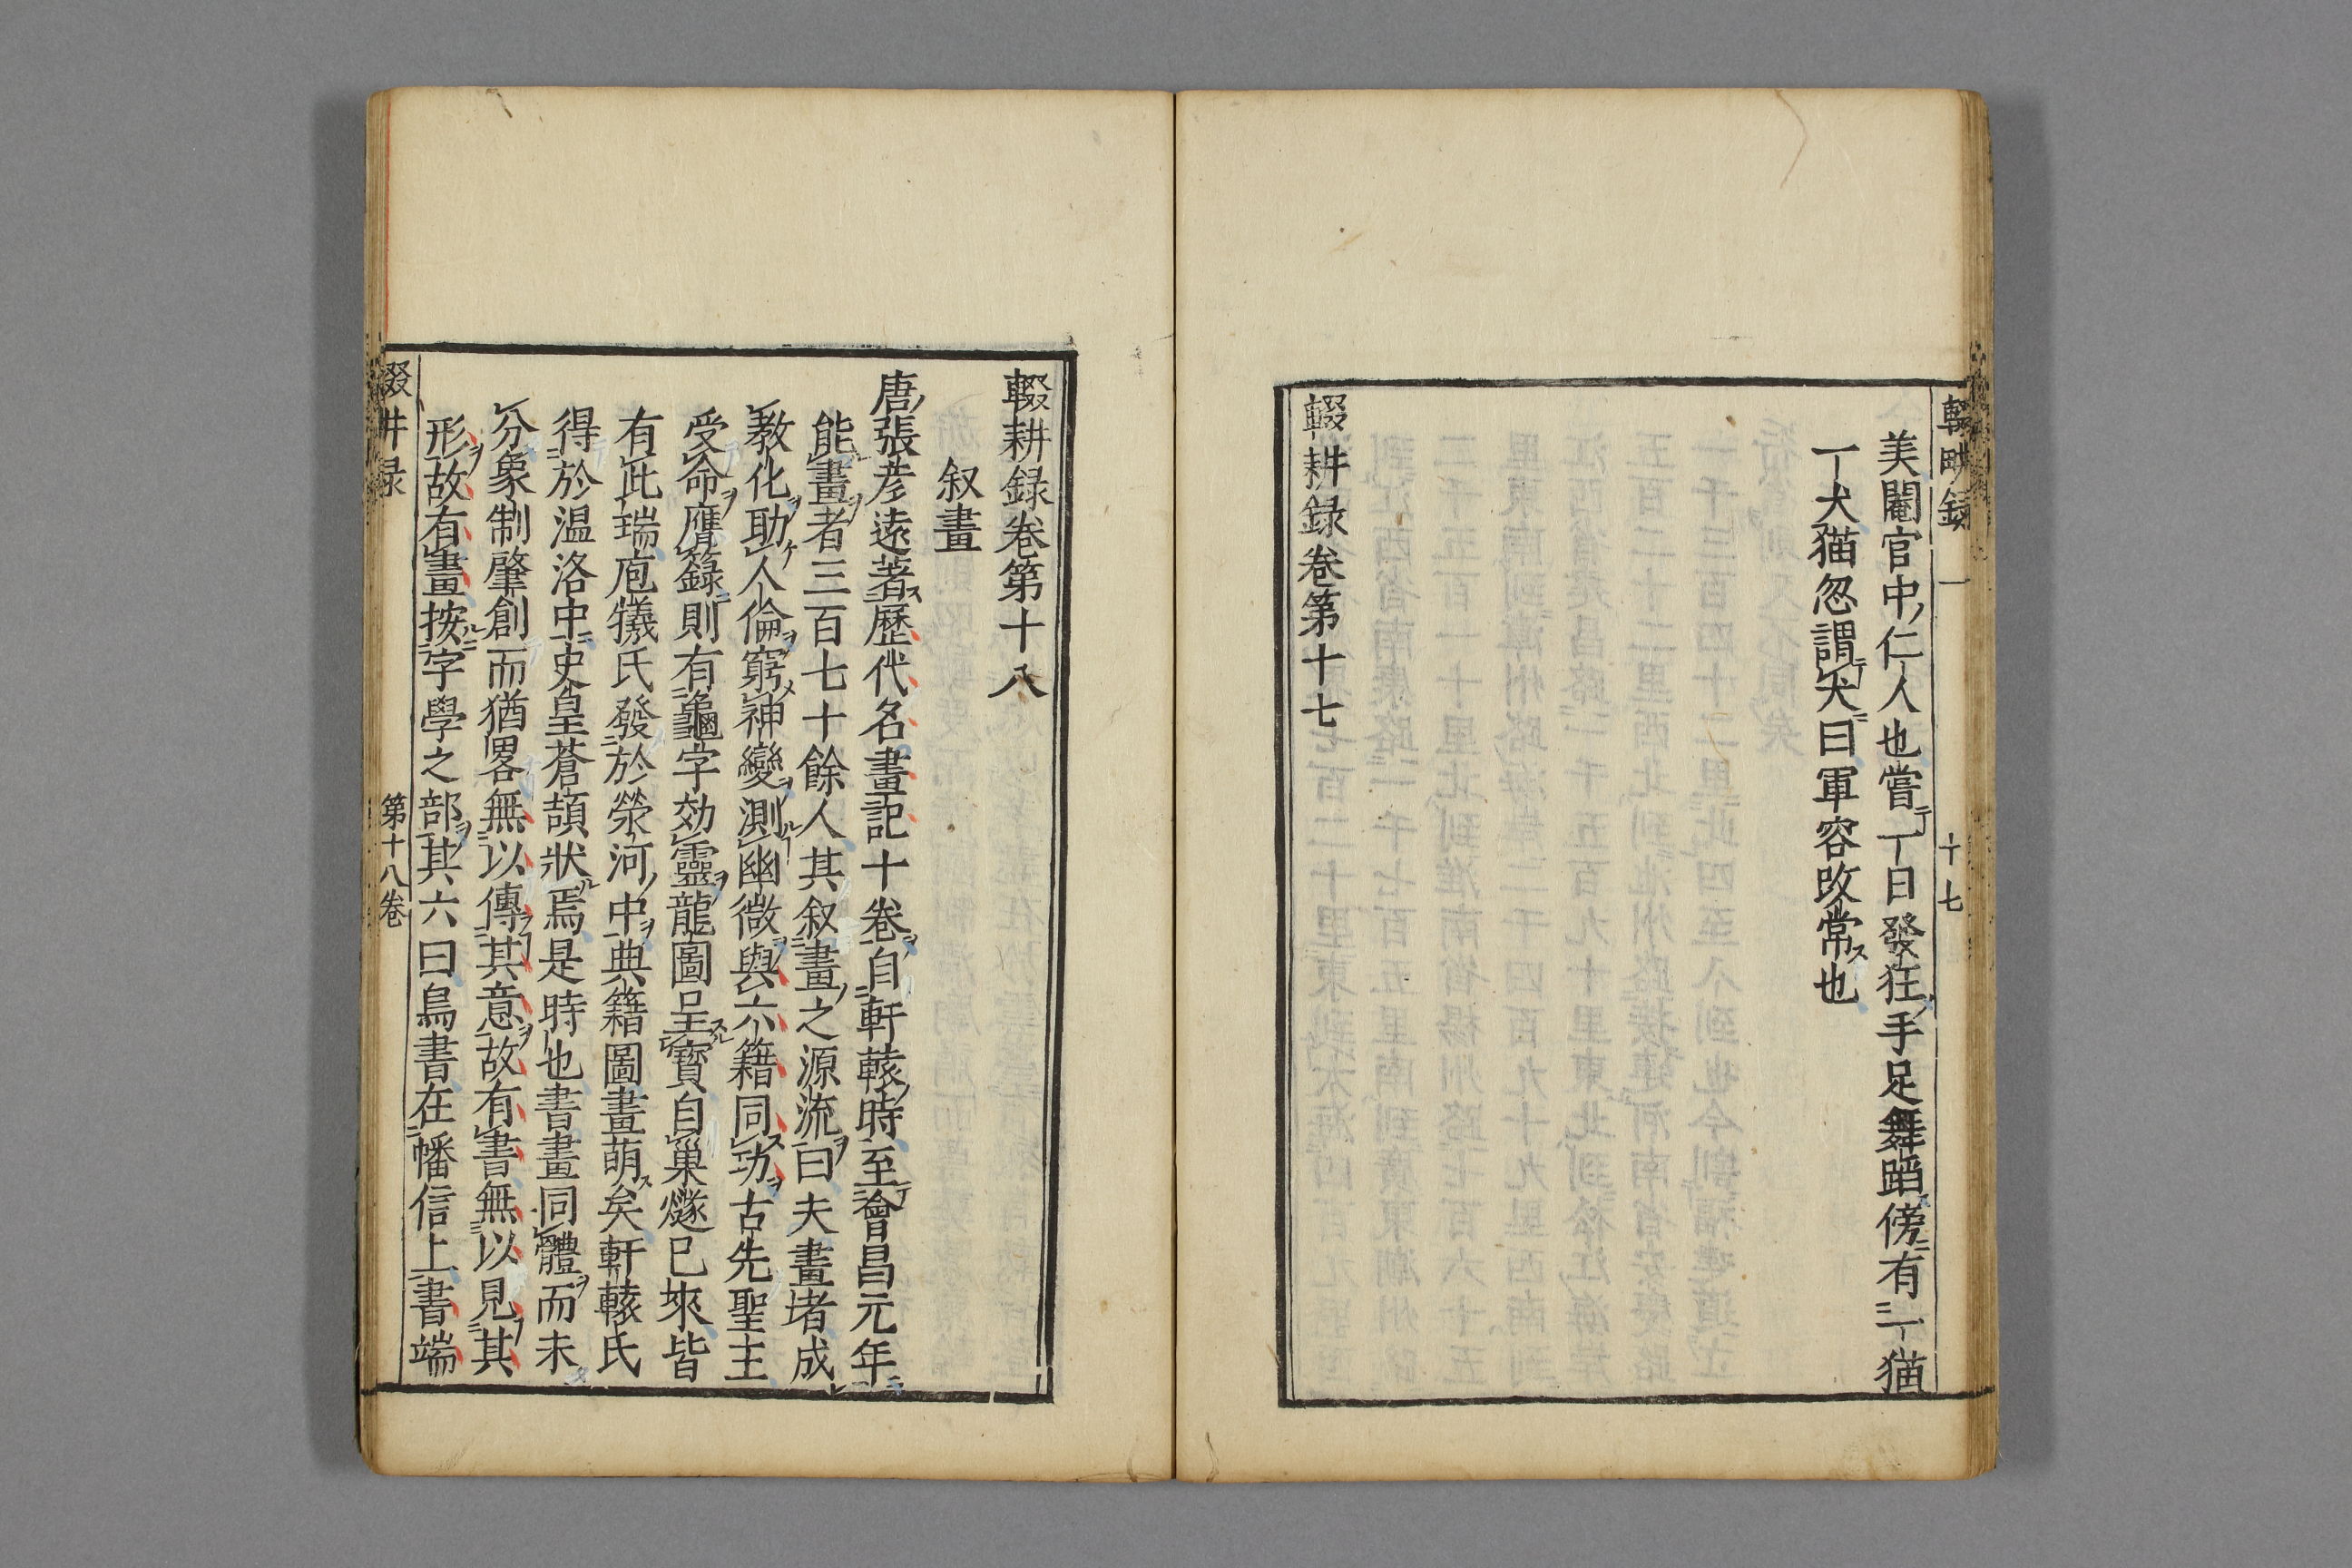 輟畊録
十七
美閹官中仁人也嘗一日發狂手足舞蹈傍有一猫
一犬猫忽謂犬曰軍容改常也
輟耕録卷第十七
輟耕録卷第十八
叙畫
唐張彦遠著歷代名畫記十卷自軒轅時至會昌元年
能畫者三百七十餘人其叙畫之源流曰夫畫者成
教化助人倫窮神變測幽微與六籍同功古先聖主
受命膺籙則有龜字効靈龍圖呈寶自巢燧已來皆
有此瑞庖犧氏發於滎河中典籍圖畫萌矣軒轅氏
得於温洛中史皇蒼頡狀焉是時也書畫同體而未
分象制肇創而猶畧無以傳其意故有書無以見其
形故有畫按字學之部其六曰鳥書在幡信上書端
輟耕録
第十八卷